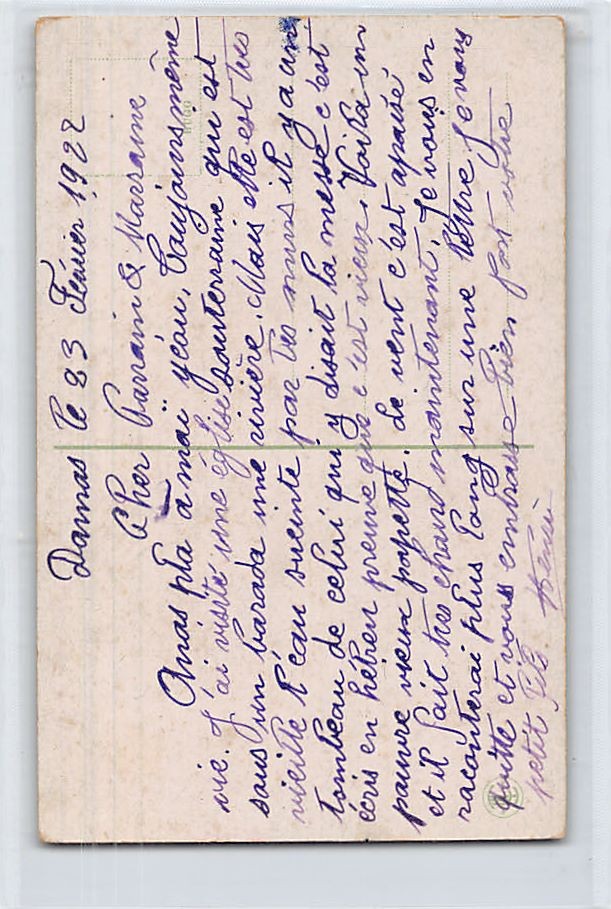 Damas le 23 Février 1922
Cher Parrain & Marraine
Anas pla amaï yéau, Toujours même
vie. J'ai visité une église souterraine qui est
sous un barada une rivière. Mais elle est très
vieille l'eau suceinte par les murs il y a un
tombeau de celui qui y disait la messe c'est
écris en hébreu preuve que c'est vieux. Voila un
pauvre vieux papette. Le vent c'est apaisé
et il fait très chaud maintenant. Je vous en
raconterai plus long sur une lettre Je vous
quitte et vous embrasse bien fort votre
petit fils.